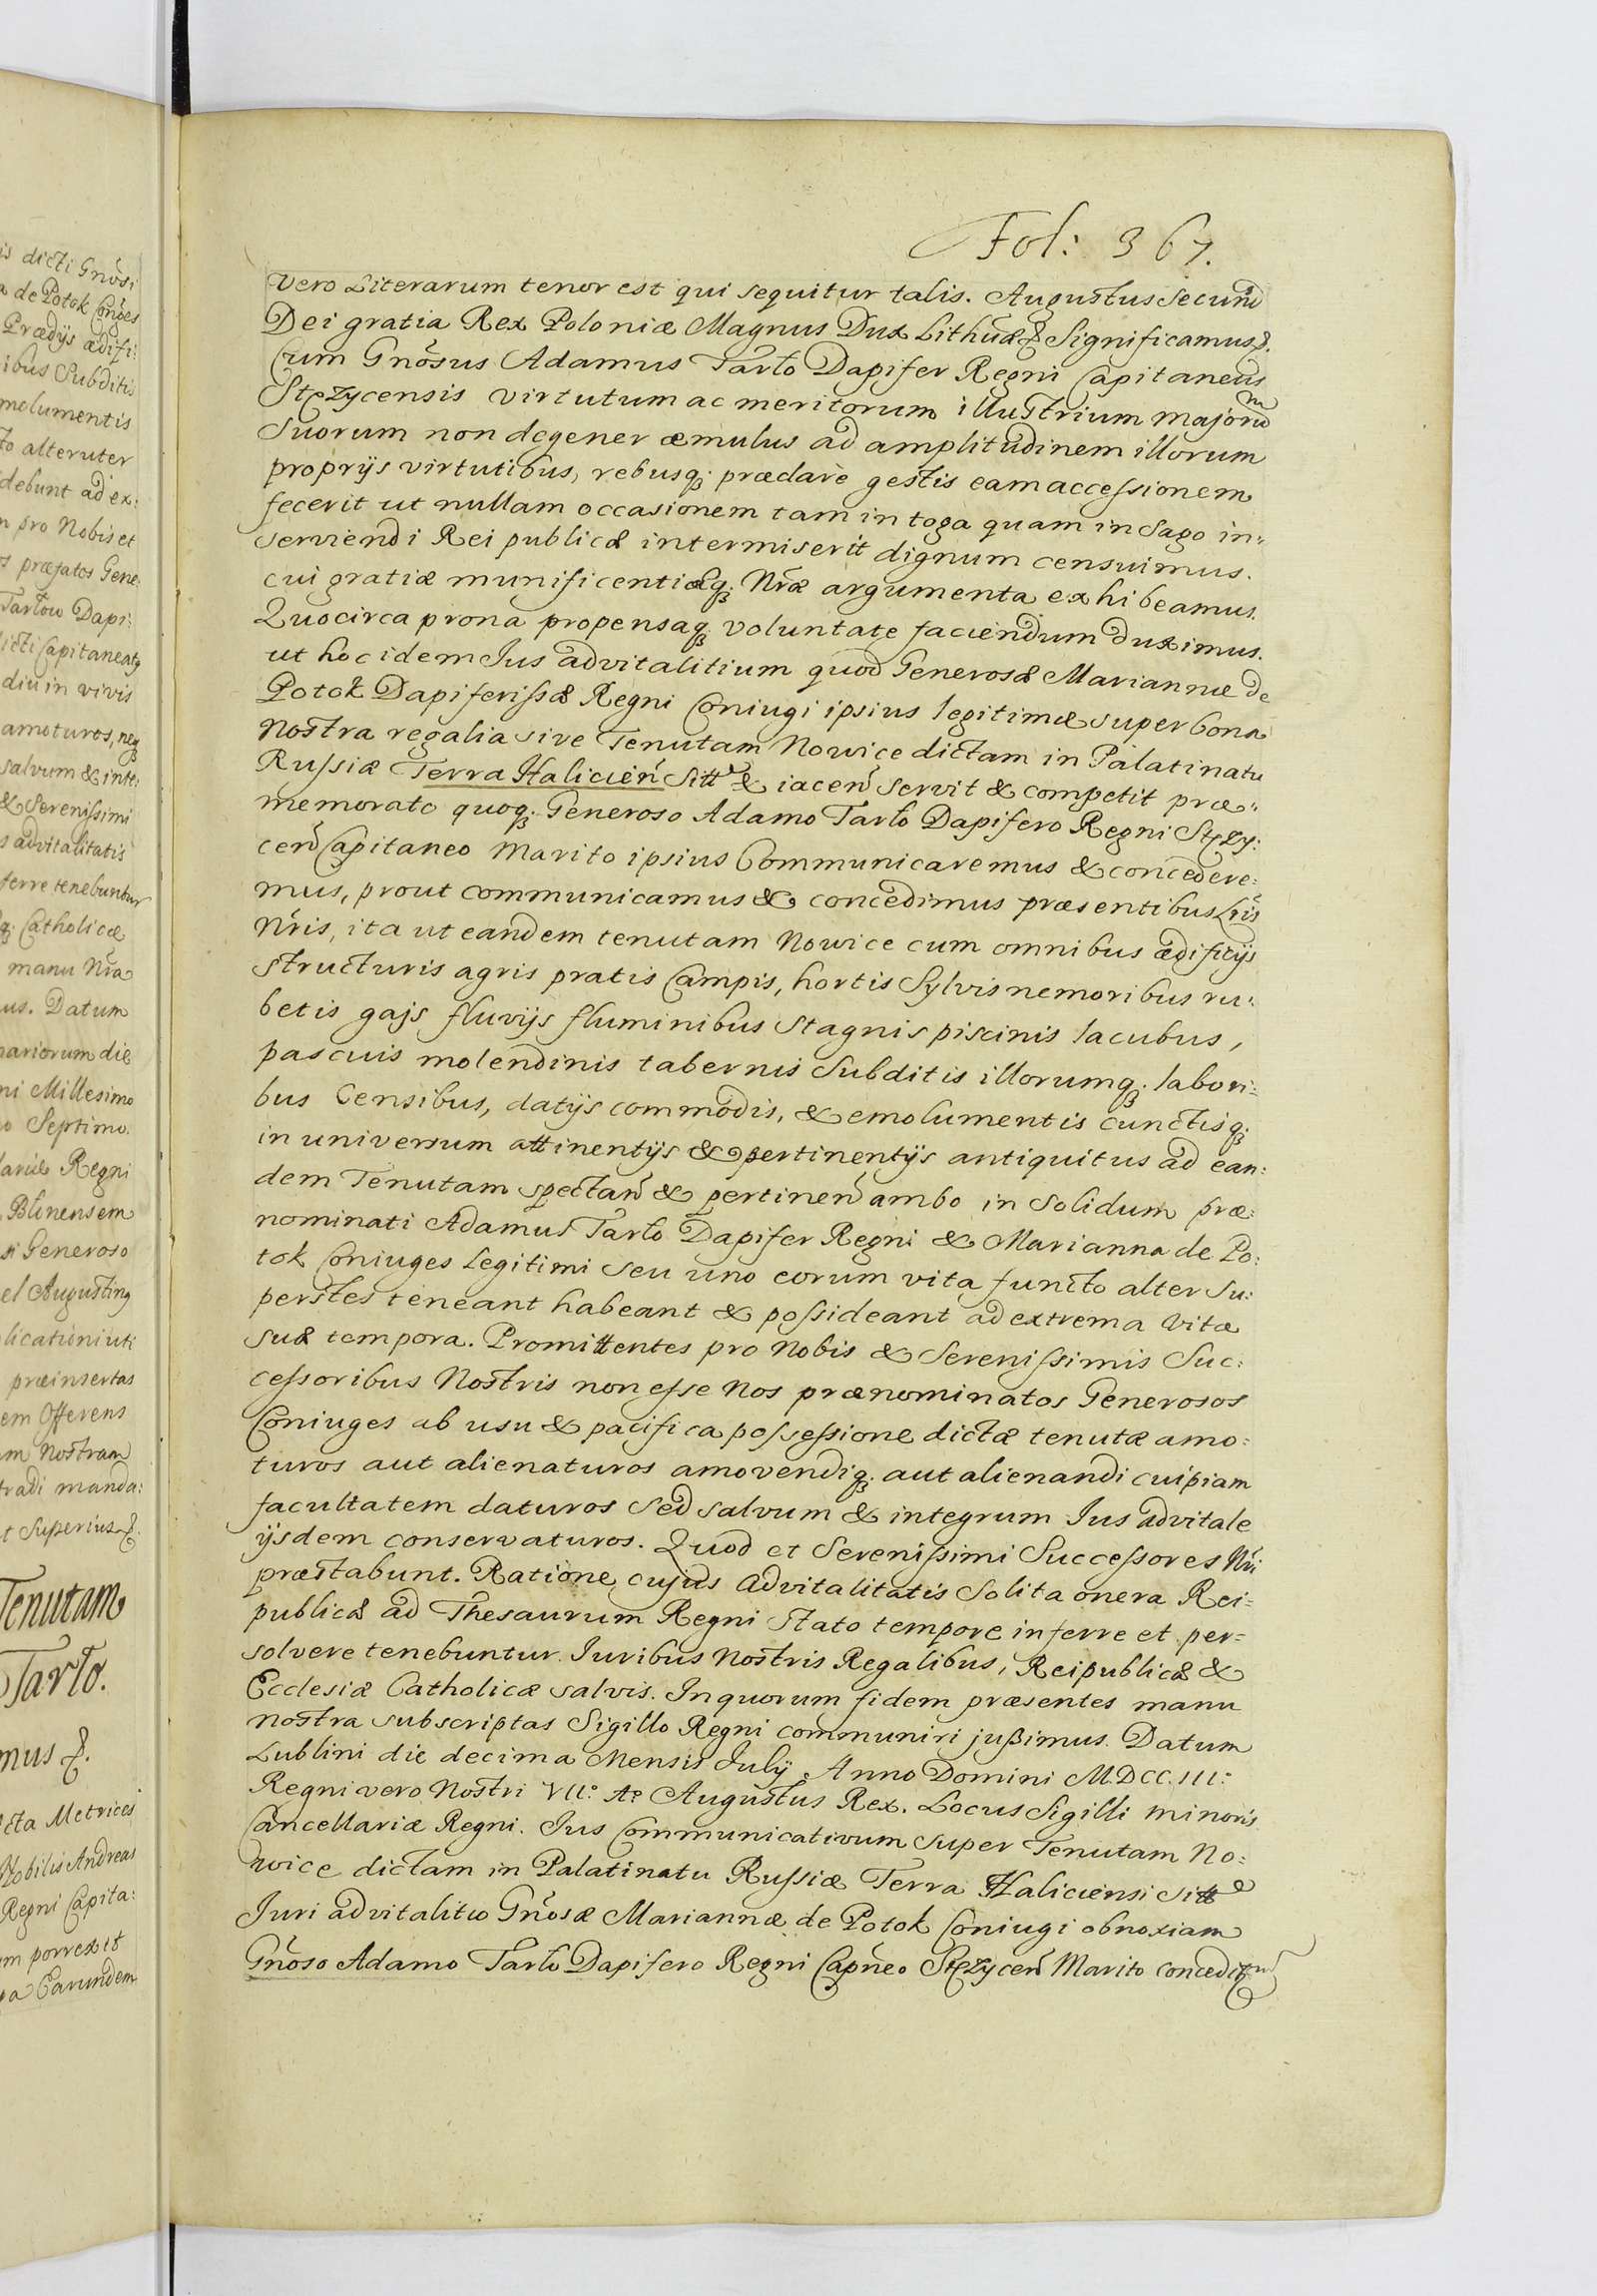 Fol: 367.
Vero Literarum tenor est qui sequitur talis. Augustus Secund
Dei gratia Rex Poloniæ Magnus Dux Lithuæ & Significamus &.
Cum Gnõsus Adamus Tarło Dapifer Regni Capitaneus
Stęzycensis virtutum ac meritorum illustrium majorũ
Suorum non degener æmulus ad amplitudinem illorum
proprijs virtutibus, rebusq; præclarè gestis eam accessionem
fecerit ut nullam occasionem tam in toga quam in Sago in-
serviendi Rei publicæ intermiserit dignum censuimus.
cui gratiæ munificentiæq; Nræ argumenta exhibeamus.
Quocirca prona propensaq; voluntate faciendum duximus.
ut hoc idem Jus advitalitium quod Generosæ Mariannæ de
Potok Dapiferissæ Regni Coniugi ipsius legitimæ super bona
Nostra regalia sive Tenutam Nowice dictam in Palatinatu
Russiæ Terra Halicień Sitt & iaceñ servit & competit præ-
memorato quoq; Generoso Adamo Tarło Dapifero Regni Stęzy:
ceñ Capitaneo Marito ipsius Communicaremus & concedere:
mus, prout communicamus & concedimus præsentibus Lris
Nris, ita ut eandem tenutam Nowice cum omnibus ædificijs
structuris agris pratis Campis, hortis Sylvis nemoribus ru:
betis gajs fluvijs fluminibus Stagnis piscinis lacubus,
pascuis molendinis tabernis Subditis illorumq; labori:
bus Censibus, datijs commodis, & emolumentis cunctisq;
in universum attinentijs & pertinentijs antiquitus ad ean:
dem Tenutam spectañ & pertineñ ambo in Solidum præ:
nominati Adamus Tarło Dapifer Regni & Marianna de Po:
tok Coniuges Legitimi seu uno eorum vita functo alter su:
perstes teneant habeant & possideant ad extrema Vitæ
suæ tempora. Promittentes pro Nobis & Serenissimis Suc:
cessoribus Nostris non esse Nos prænominatos Generosos
Coniuges ab usu & pacifica possessione dictæ tenutæ amo:
turos aut alienaturos amovendiq; aut alienandi cuipiam
facultatem daturos Sed salvum & integrum Jus advitale
ijsdem conservaturos. Quod et Serenissimi Successores Nri
præstabunt. Ratione cujus advitalitatis Solita onera Rei-
publicæ ad Thesaurum Regni stato tempore inferre et per-
solvere tenebuntur. Juribus Nostris Regalibus, Reipublicæ &
Ecclesiæ Catholicæ salvis. In quorum fidem præsentes manu
nostra subscriptas Sigillo Regni communiri jussimus. Datum
Lublini die decima Mensis July Anno Domini M.DCC.III:
Regni vero Nostri VII: Aº Augustus Rex. Locus Sigilli minoris
Cancellariæ Regni. Jus Communicativum super Tenutam No:
wice dictam in Palatinatu Russiæ Terra Haliciensi Sitt
Juri advitalitio Gnõsæ Mariannæ de Potok Coniugi obnoxiam
Gnõso Adamo Tarło Dapifero Regni Capneo Stęzyceñ Marito conceditur
is dicti Gnõsi
de Potok
Prædijs ædifi:
ibus Subditis
molumentis
to alteruter
debunt ad ex:
pro Nobis et
præfatos Gene:
Tarłow Dapi:
dicti Capitaneatq
diu in vivis
amoturos, neq
salvum & inte:
& Serenissimi
advitalitatis
ferre tenebuntur
q; Catholicæ
manu Nra
us. Datum
nariorum die
ni Millesimo
o Septimo.
Regni
Płinensem
Generoso
el Augustinq
licationi uti
præinsertas
em Offerens
m Nostram
tradi manda:
t Superius &.
Tenutam
Tarło.
mus &.
cta Metrices
Nobilis Andreas
Regni Capita:
m porrexit
Earundem